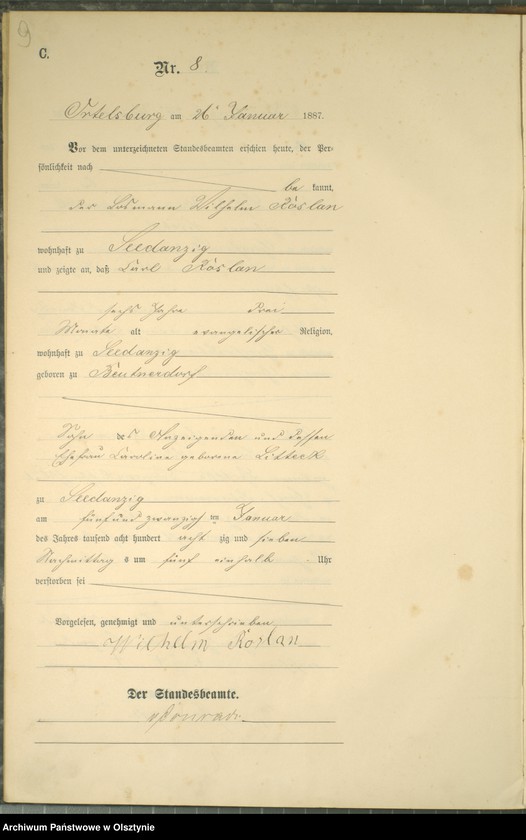 9
C.
Nr. 8.
Ortelsburg am 26 Januar 1887.
Vor dem unterzeichneten Standesbeamten erschien heute, der Per-
sönlichkeit nach
be kannt,
der Losmann Wilhelm Röslan
wohnhaft zu Seedanzig
und zeigte an, daß Carl Röslan
sechs Jahre drei
Monate alt evangelischer Religion,
wohnhaft zu Seedanzig
geboren zu Beutnerdorf
Sohn des Anzeigenden und dessen
Ehefrau Caroline geborene Litteck
zu Seedanzig
am fünfundzwanzigsten Januar
des Jahres tausend acht hundert acht zig und sieben
Nachmittag s um fünf einhalb Uhr
verstorben sei
Vorgelesen, genehmigt und unterschrieben
Wilhelm Roslan
Der Standesbeamte.
Archiwum Państwowe w Olsztynie